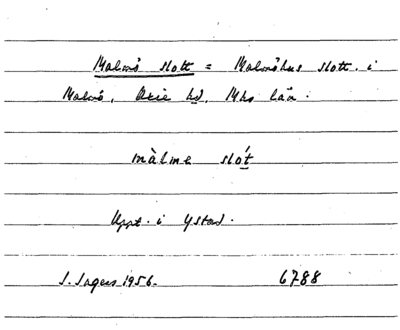 Malmö slott = Malmöhus slott i
Malmö, Oxie hd, Mhs län.
màlme slót
Uppt. i Ystad.
S. Ingers 1956. 6788